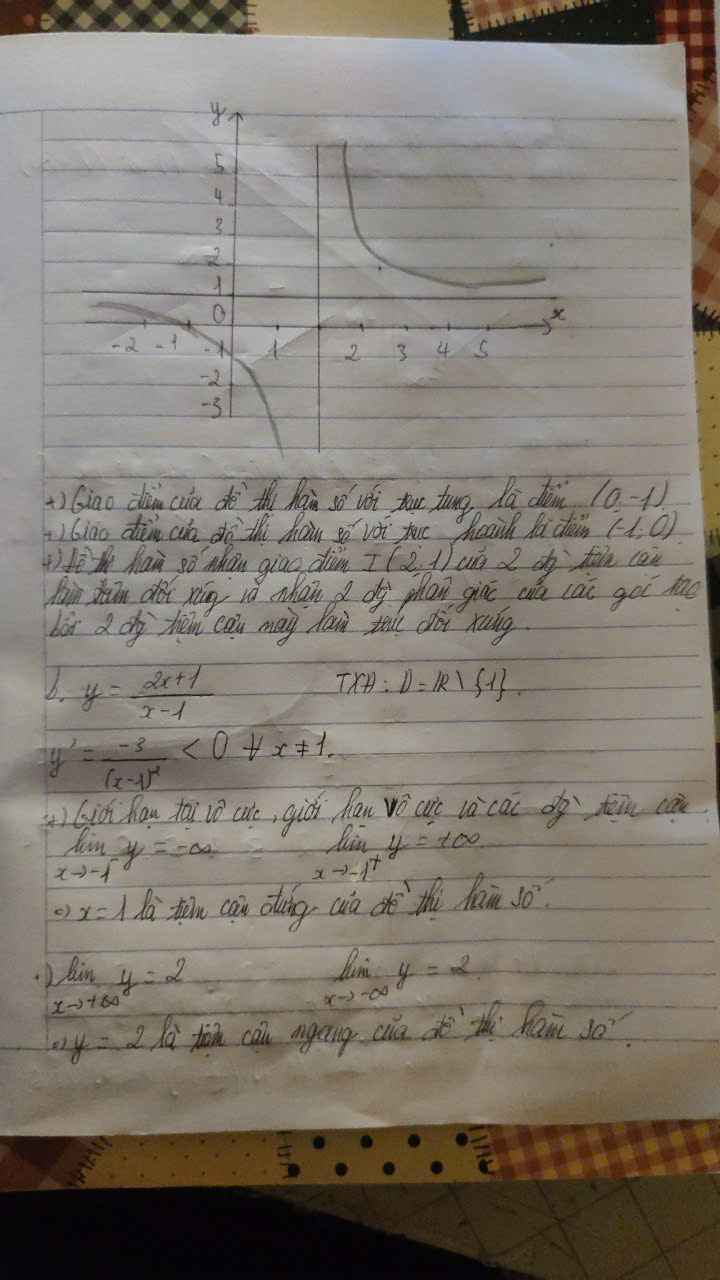 y
5
4
3
2
1
0
x
-2 -1 -1 1 2 3 4 5
-2
-3
+) Giao điểm của đồ thị hàm số với trục tung là điểm (0,-1)
+) Giao điểm của đồ thị hàm số với trục hoành là điểm (-1,0)
+) Đồ thị hàm số nhận giao điểm I (2;1) của 2 đg tiệm cận
làm tâm đối xứng và nhận 2 đg phân giác của các góc tạo
bởi 2 đg tiệm cận này làm trục đối xứng.
b. y = (2x+1)/(x-1) TXĐ: D = ℝ \ {1}.
y' = -3/(x-1)² < 0 ∀ x ≠ 1.
+) Giới hạn tại vô cực, giới hạn vô cực và các đg tiệm cận
lim y = -∞ lim y = +∞
x→-1⁻ x→-1⁺
=) x = 1 là tiệm cận đứng của đồ thị hàm số.
+) lim y = 2 lim y = 2
x→+∞ x→-∞
=) y = 2 là tiệm cận ngang của đồ thị hàm số.